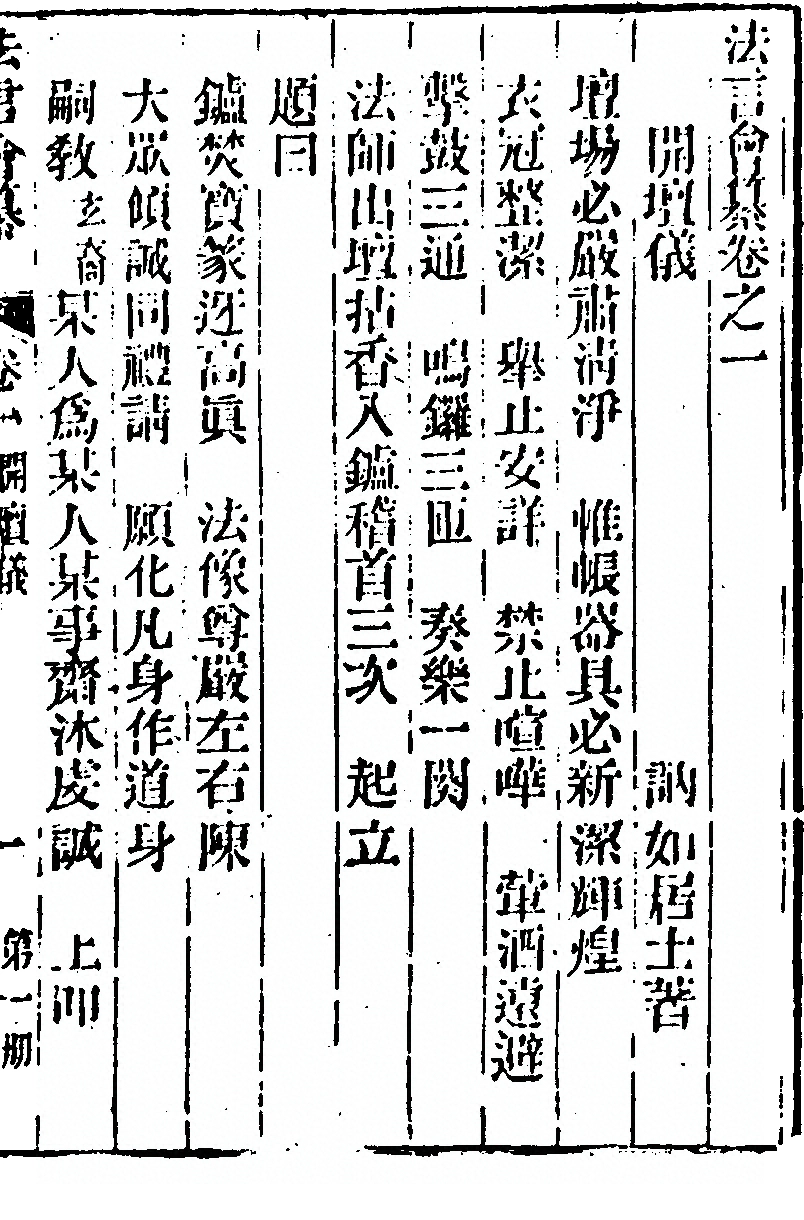 法言會纂卷之一
開壇儀　訥如居士著
壇場必嚴肅淸淨　惟帳器具必新潔輝煌
衣冠整潔　舉止安詳　禁止喧嘩　葷酒遠避
擊鼓三通　鳴鑼三匝　奏樂一闋
法師出壇拈香入鑪稽首三次　起立
題曰
鑪焚寶篆迓高眞　法像尊嚴左右陳
大眾傾誠同禮請　願化凡身作道身
嗣敎玄裔某人爲某人某事齋沐虔誠　上叩
法言會纂　卷一　開壇儀　一　第一册